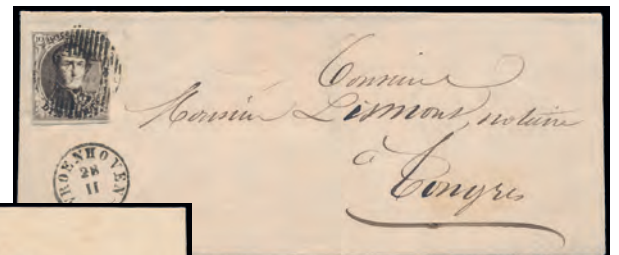 Monsieur
Monsieur Lismont, notaire
à
Tongres
VROENHOVEN
28
II